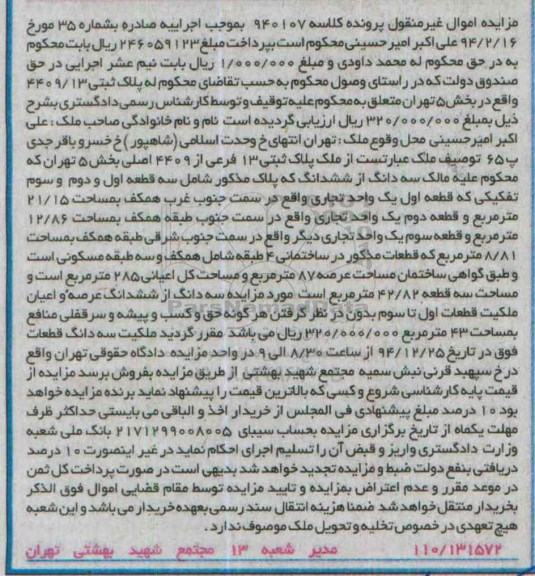 مزایده اموال غیرمنقول پرونده کلاسه ۹۴۰۱۰۷ بموجب اجراییه صادره بشماره ۳۵ مورخ
۹۴/۲/۱۶ علی اکبر امیرحسینی محکوم است بپرداخت مبلغ ۲۴۶۰۵۹۱۲۳ ریال بابت محکوم
به در حق محکوم له محمد داودی و مبلغ ۱/۰۰۰/۰۰۰ ریال بابت نیم عشر اجرایی در حق
صندوق دولت که در راستای وصول محکوم به حسب تقاضای محکوم له پلاک ثبتی ۴۴۰۹/۱۳
واقع در بخش ۵ تهران متعلق به محکوم علیه توقیف و توسط کارشناس رسمی دادگستری بشرح
ذیل بمبلغ ۳۲۰/۰۰۰/۰۰۰ ریال ارزیابی گردیده است نام و نام خانوادگی صاحب ملک : علی
اکبر امیرحسینی محل وقوع ملک : تهران انتهای خ وحدت اسلامی (شاهپور) خ خسرو باقر جدی
پ ۶۵ توصیف ملک عبارتست از ملک پلاک ثبتی ۱۳ فرعی از ۴۴۰۹ اصلی بخش ۵ تهران که
محکوم علیه مالک سه دانگ از ششدانگ که پلاک مذکور شامل سه قطعه اول و دوم و سوم
تفکیکی که قطعه اول یک واحد تجاری واقع در سمت جنوب غرب همکف بمساحت ۲۱/۱۵
مترمربع و قطعه دوم یک واحد تجاری واقع در سمت جنوب طبقه همکف بمساحت ۱۲/۸۶
مترمربع و قطعه سوم یک واحد تجاری دیگر واقع در سمت جنوب شرقی طبقه همکف بمساحت
۸/۸۱ مترمربع که قطعات مذکور در ساختمانی ۴ طبقه شامل همکف و سه طبقه مسکونی است
و طبق گواهی ساختمان مساحت عرصه ۸۷ مترمربع و مساحت کل اعیانی ۲۸۵ مترمربع است و
مساحت سه قطعه ۴۲/۸۲ مترمربع است مورد مزایده سه دانگ از ششدانگ عرصه و اعیان
ملکیت قطعات اول تا سوم بدون در نظر گرفتن هر گونه حق و کسب و پیشه و سرقفلی منافع
بمساحت ۴۳ مترمربع ۳۲۰/۰۰۰/۰۰۰ ریال می باشد مقرر گردید ملکیت سه دانگ قطعات
فوق در تاریخ ۹۴/۱۲/۲۵ از ساعت ۸/۳۰ الی ۹ در واحد مزایده دادگاه حقوقی تهران واقع
در خ سپهبد قرنی نبش سمیه مجتمع شهید بهشتی از طریق مزایده بفروش برسد مزایده از
قیمت پایه کارشناسی شروع و کسی که بالاترین قیمت را پیشنهاد نماید برنده مزایده خواهد
بود ۱۰ درصد مبلغ پیشنهادی فی المجلس از خریدار اخذ و الباقی می بایستی حداکثر ظرف
مهلت یکماه از تاریخ برگزاری مزایده بحساب سیبای ۲۱۷۱۲۹۹۰۰۸۰۰۵ بانک ملی شعبه
وزارت دادگستری واریز و قبض آن را تسلیم اجرای احکام نماید در غیر اینصورت ۱۰ درصد
دریافتی بنفع دولت ضبط و مزایده تجدید خواهد شد بدیهی است در صورت پرداخت کل ثمن
در موعد مقرر و عدم اعتراض بمزایده و تایید مزایده توسط مقام قضایی اموال فوق الذکر
بخریدار منتقل خواهد شد ضمنا هزینه انتقال سند رسمی بعهده خریدار می باشد و این شعبه
هیچ تعهدی در خصوص تخلیه و تحویل ملک موصوف ندارد .
۱۱۰/۱۳۱۵۷۲ مدیر شعبه ۱۳ مجتمع شهید بهشتی تهران